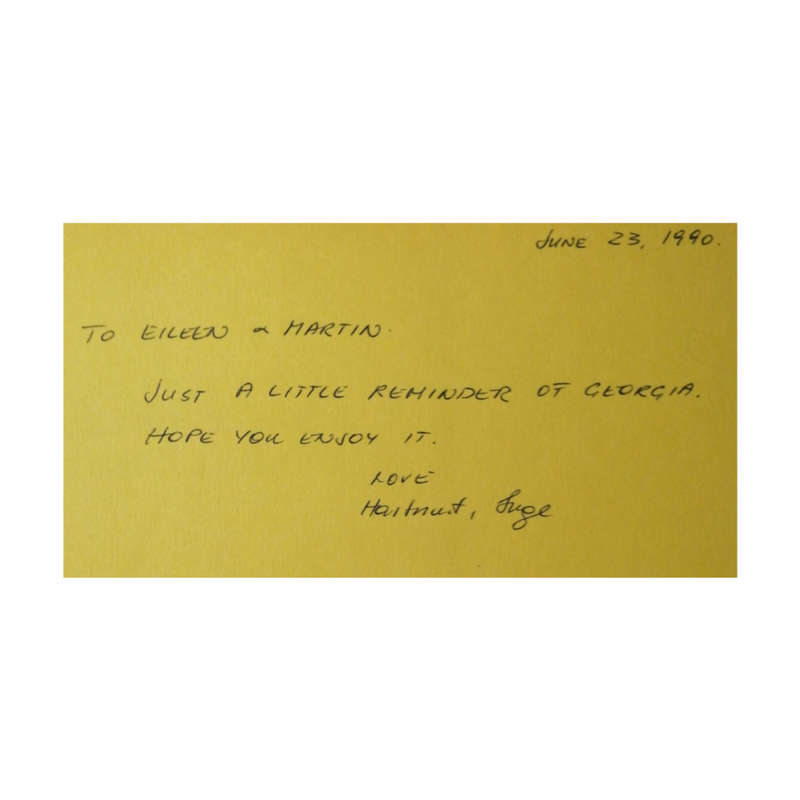 JUNE 23, 1990.
TO EILEEN & MARTIN.
JUST A LITTLE REMINDER OF GEORGIA.
HOPE YOU ENJOY IT.
LOVE
Hartmut, Inge